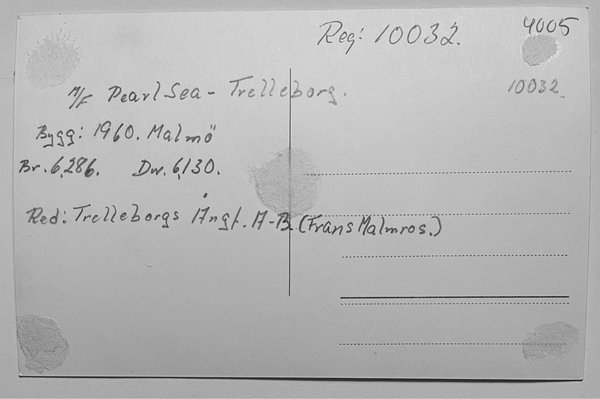 Reg: 10032.
4005
10032.
M/F Pearl Sea - Trelleborg.
Bygg: 1960. Malmö
Br. 6,286. Dw. 6,130.
Red: Trelleborgs Ångf. A-B. (Frans Malmros.)